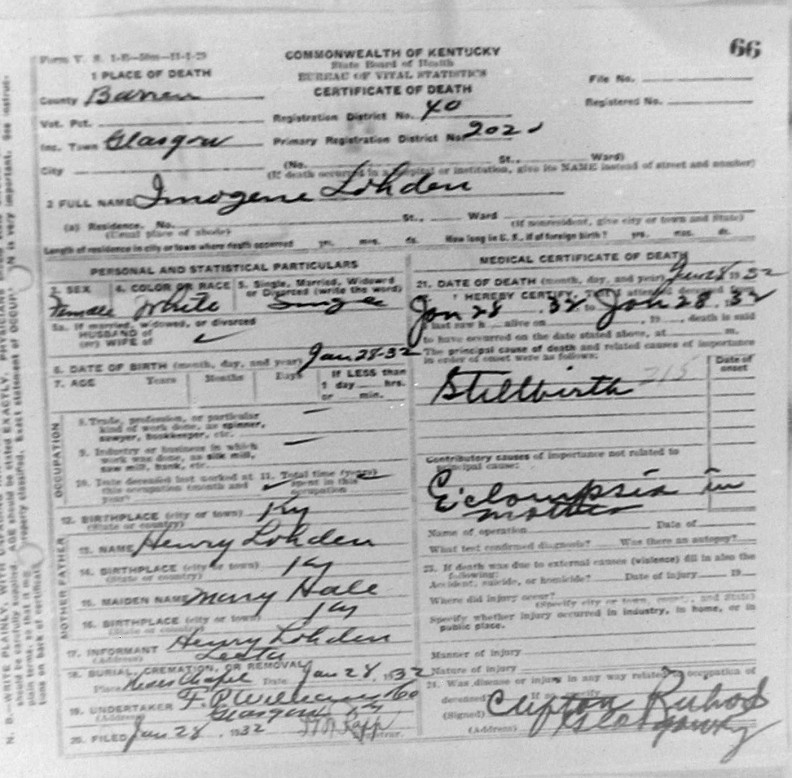 66
Form V. S. 1-B—50m—11-1-29
COMMONWEALTH OF KENTUCKY
State Board of Health
BUREAU OF VITAL STATISTICS
CERTIFICATE OF DEATH
1 PLACE OF DEATH
File No.
County Barren
Registered No.
Vot. Pct. Registration District No. 40
Inc. Town Glasgow Primary Registration District No. 202
City (No. St., Ward)
(If death occurred in a hospital or institution, give its NAME instead of street and number)
2 FULL NAME Imogene Lohden
(a) Residence. No. St., Ward
(Usual place of abode) (If nonresident, give city or town and State)
Length of residence in city or town where death occurred yrs. mos. ds. How long in U. S., if of foreign birth? yrs. mos. ds.
PERSONAL AND STATISTICAL PARTICULARS
3. SEX Female
4. COLOR OR RACE White
5. Single, Married, Widowed or Divorced (write the word) Single
5a. If married, widowed, or divorced
HUSBAND of
(or) WIFE of
6. DATE OF BIRTH (month, day, and year) Jan 28-32
7. AGE Years Months Days If LESS than
1 day hrs.
or min.
OCCUPATION
8. Trade, profession, or particular
kind of work done, as spinner,
sawyer, bookkeeper, etc.
9. Industry or business in which
work was done, as silk mill,
saw mill, bank, etc.
10. Date deceased last worked at
this occupation (month and
year)
11. Total time (years)
spent in this
occupation
12. BIRTHPLACE (city or town) Ky
(State or country)
FATHER
13. NAME Henry Lohden
14. BIRTHPLACE (city or town) Ky
(State or country)
MOTHER
15. MAIDEN NAME Mary Hale
16. BIRTHPLACE (city or town) Ky
(State or country)
17. INFORMANT Henry Lohden
(Address)
18. BURIAL, CREMATION, OR REMOVAL
Place Chapel Date Jan 28, 1932
19. UNDERTAKER F. C. Williams Co
(Address) Glasgow Ky
20. FILED Jan 28, 1932
MEDICAL CERTIFICATE OF DEATH
21. DATE OF DEATH (month, day, and year) Jan 28 1932
I HEREBY CERTIFY, That I attended deceased from
Jan 28, 32, to Jan 28, 32
I last saw h alive on 19 , death is said
to have occurred on the date stated above, at m.
The principal cause of death and related causes of importance
in order of onset were as follows:
Date of onset
Stillbirth 215
Contributory causes of importance not related to
principal cause:
Eclampsia in
mother
Name of operation Date of
What test confirmed diagnosis? Was there an autopsy?
23. If death was due to external causes (violence) fill in also the
following:
Accident, suicide, or homicide? Date of injury 19
Where did injury occur?
(Specify city or town, county, and State)
Specify whether injury occurred in industry, in home, or in
public place.
Manner of injury
Nature of injury
24. Was disease or injury in any way related to occupation of
deceased? If so, specify
(Signed) Clifton
(Address) Glasgow Ky